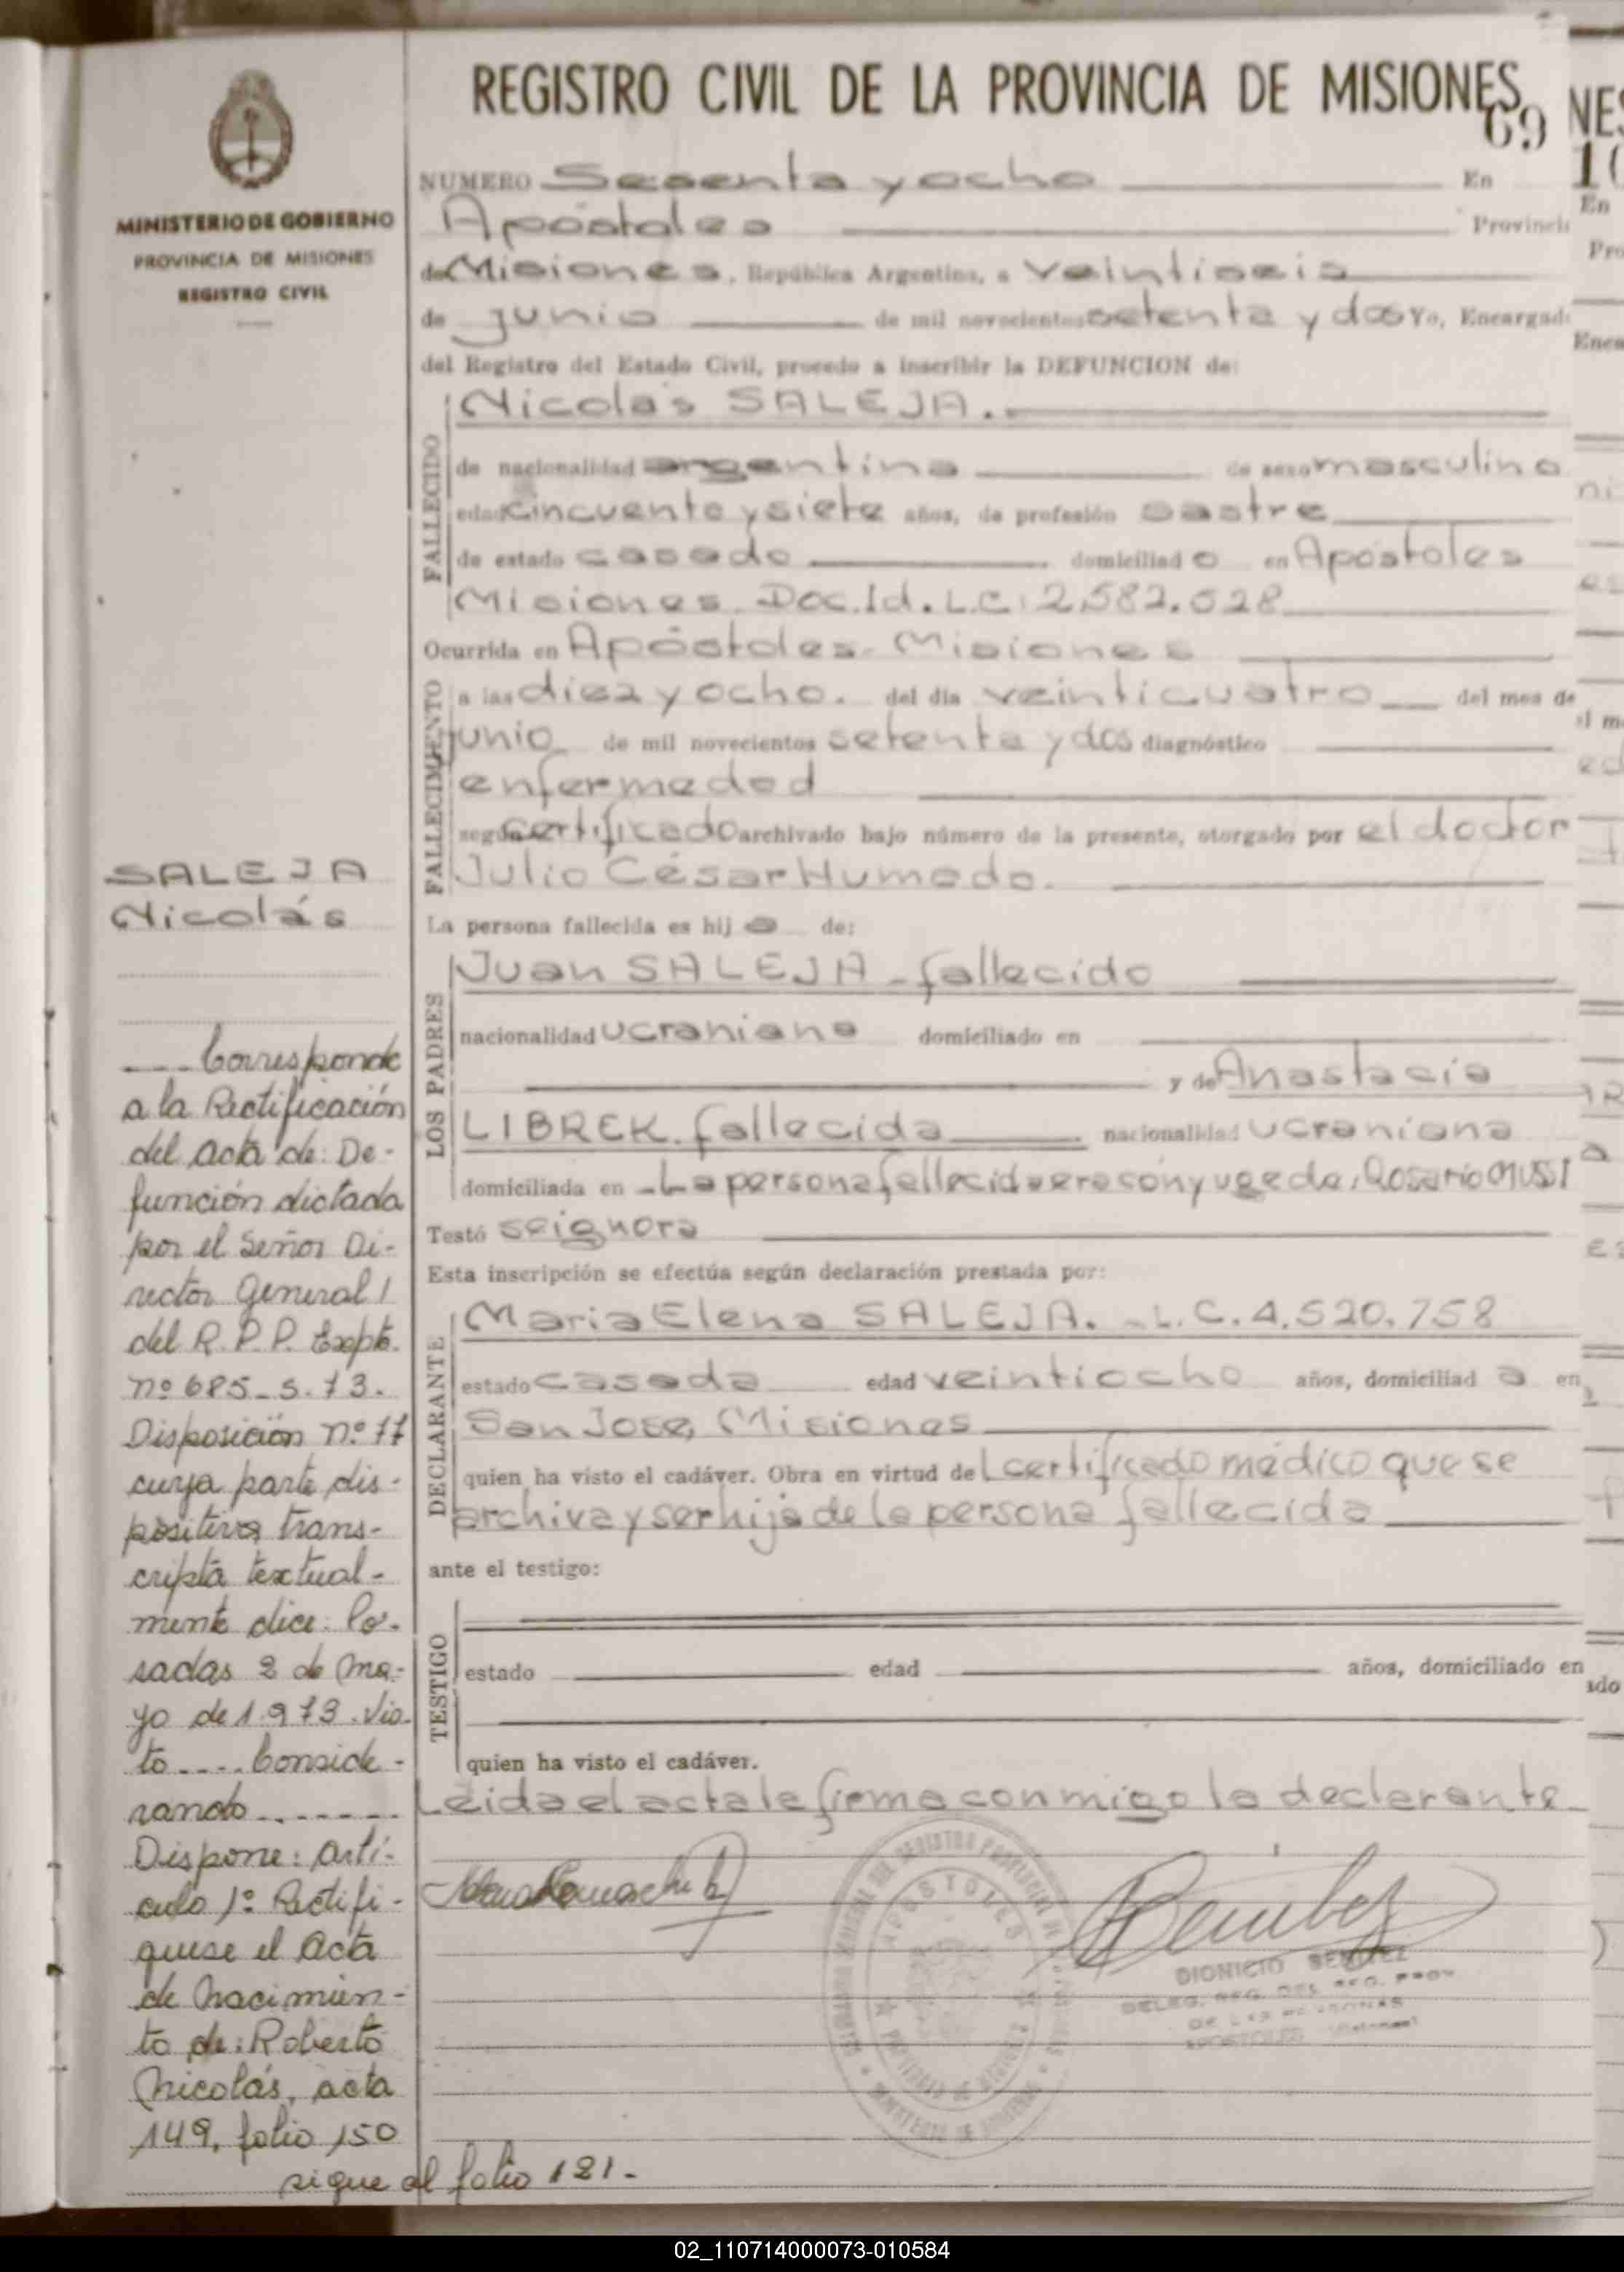 MINISTERIO DE GOBIERNO
PROVINCIA DE MISIONES
REGISTRO CIVIL
SALEJA
Nicolás
---- Corresponde
a la Rectificación
del acta de: De-
función dictada
por el Señor Di-
rector General
del R. P. P. Expte.
nº 685-S-73.
Disposición nº 77
cuya parte dis-
positiva trans-
cripta textual-
mente dice: Po-
sadas 2 de Ma-
yo de 1.973. Vis-
to .... Conside-
rando .......
Dispone: Artí-
culo 1º: Rectifi-
quese el Acta
de Nacimien-
to de: Roberto
Nicolás, acta
149, folio 150
sigue al folio 121.-
REGISTRO CIVIL DE LA PROVINCIA DE MISIONES
69
NUMERO Sesenta y ocho En
Apóstoles Provincia
de Misiones, República Argentina, a veintiseis
de junio de mil novecientos setenta y dos Yo, Encargado
del Registro del Estado Civil, procedo a inscribir la DEFUNCION de:
FALLECIDO
Nicolás SALEJA.
de nacionalidad argentina de sexo masculino
edad cincuenta y siete años, de profesión sastre
de estado casado domiciliado en Apóstoles
Misiones. Doc. Id. L.C: 2.582.528
Ocurrida en Apóstoles- Misiones
FALLECIMIENTO
a las diez y ocho. del día veinticuatro del mes de
junio de mil novecientos setenta y dos diagnóstico
enfermedad
según certificado archivado bajo número de la presente, otorgado por el doctor
Julio César Humada.
La persona fallecida es hijo de:
LOS PADRES
Juan SALEJA - fallecido
nacionalidad ucraniana domiciliado en
y de Anastacia
LIBREK. fallecida nacionalidad ucraniana
domiciliada en - La persona fallecida era cónyuge de: Rosario MUSSI
Testó se ignora
Esta inscripción se efectúa según declaración prestada por:
DECLARANTE
Maria Elena SALEJA. - L. C. 4.520.758
estado casada edad veintiocho años, domiciliada en
San José, Misiones
quien ha visto el cadáver. Obra en virtud del certificado médico que se
archiva y ser hija de la persona fallecida
ante el testigo:
TESTIGO
estado edad años, domiciliado en
quien ha visto el cadáver.
Leida el acta la firma conmigo la declarante
APOSTOLES
DIONICIO BENITEZ
02_110714000073-010584